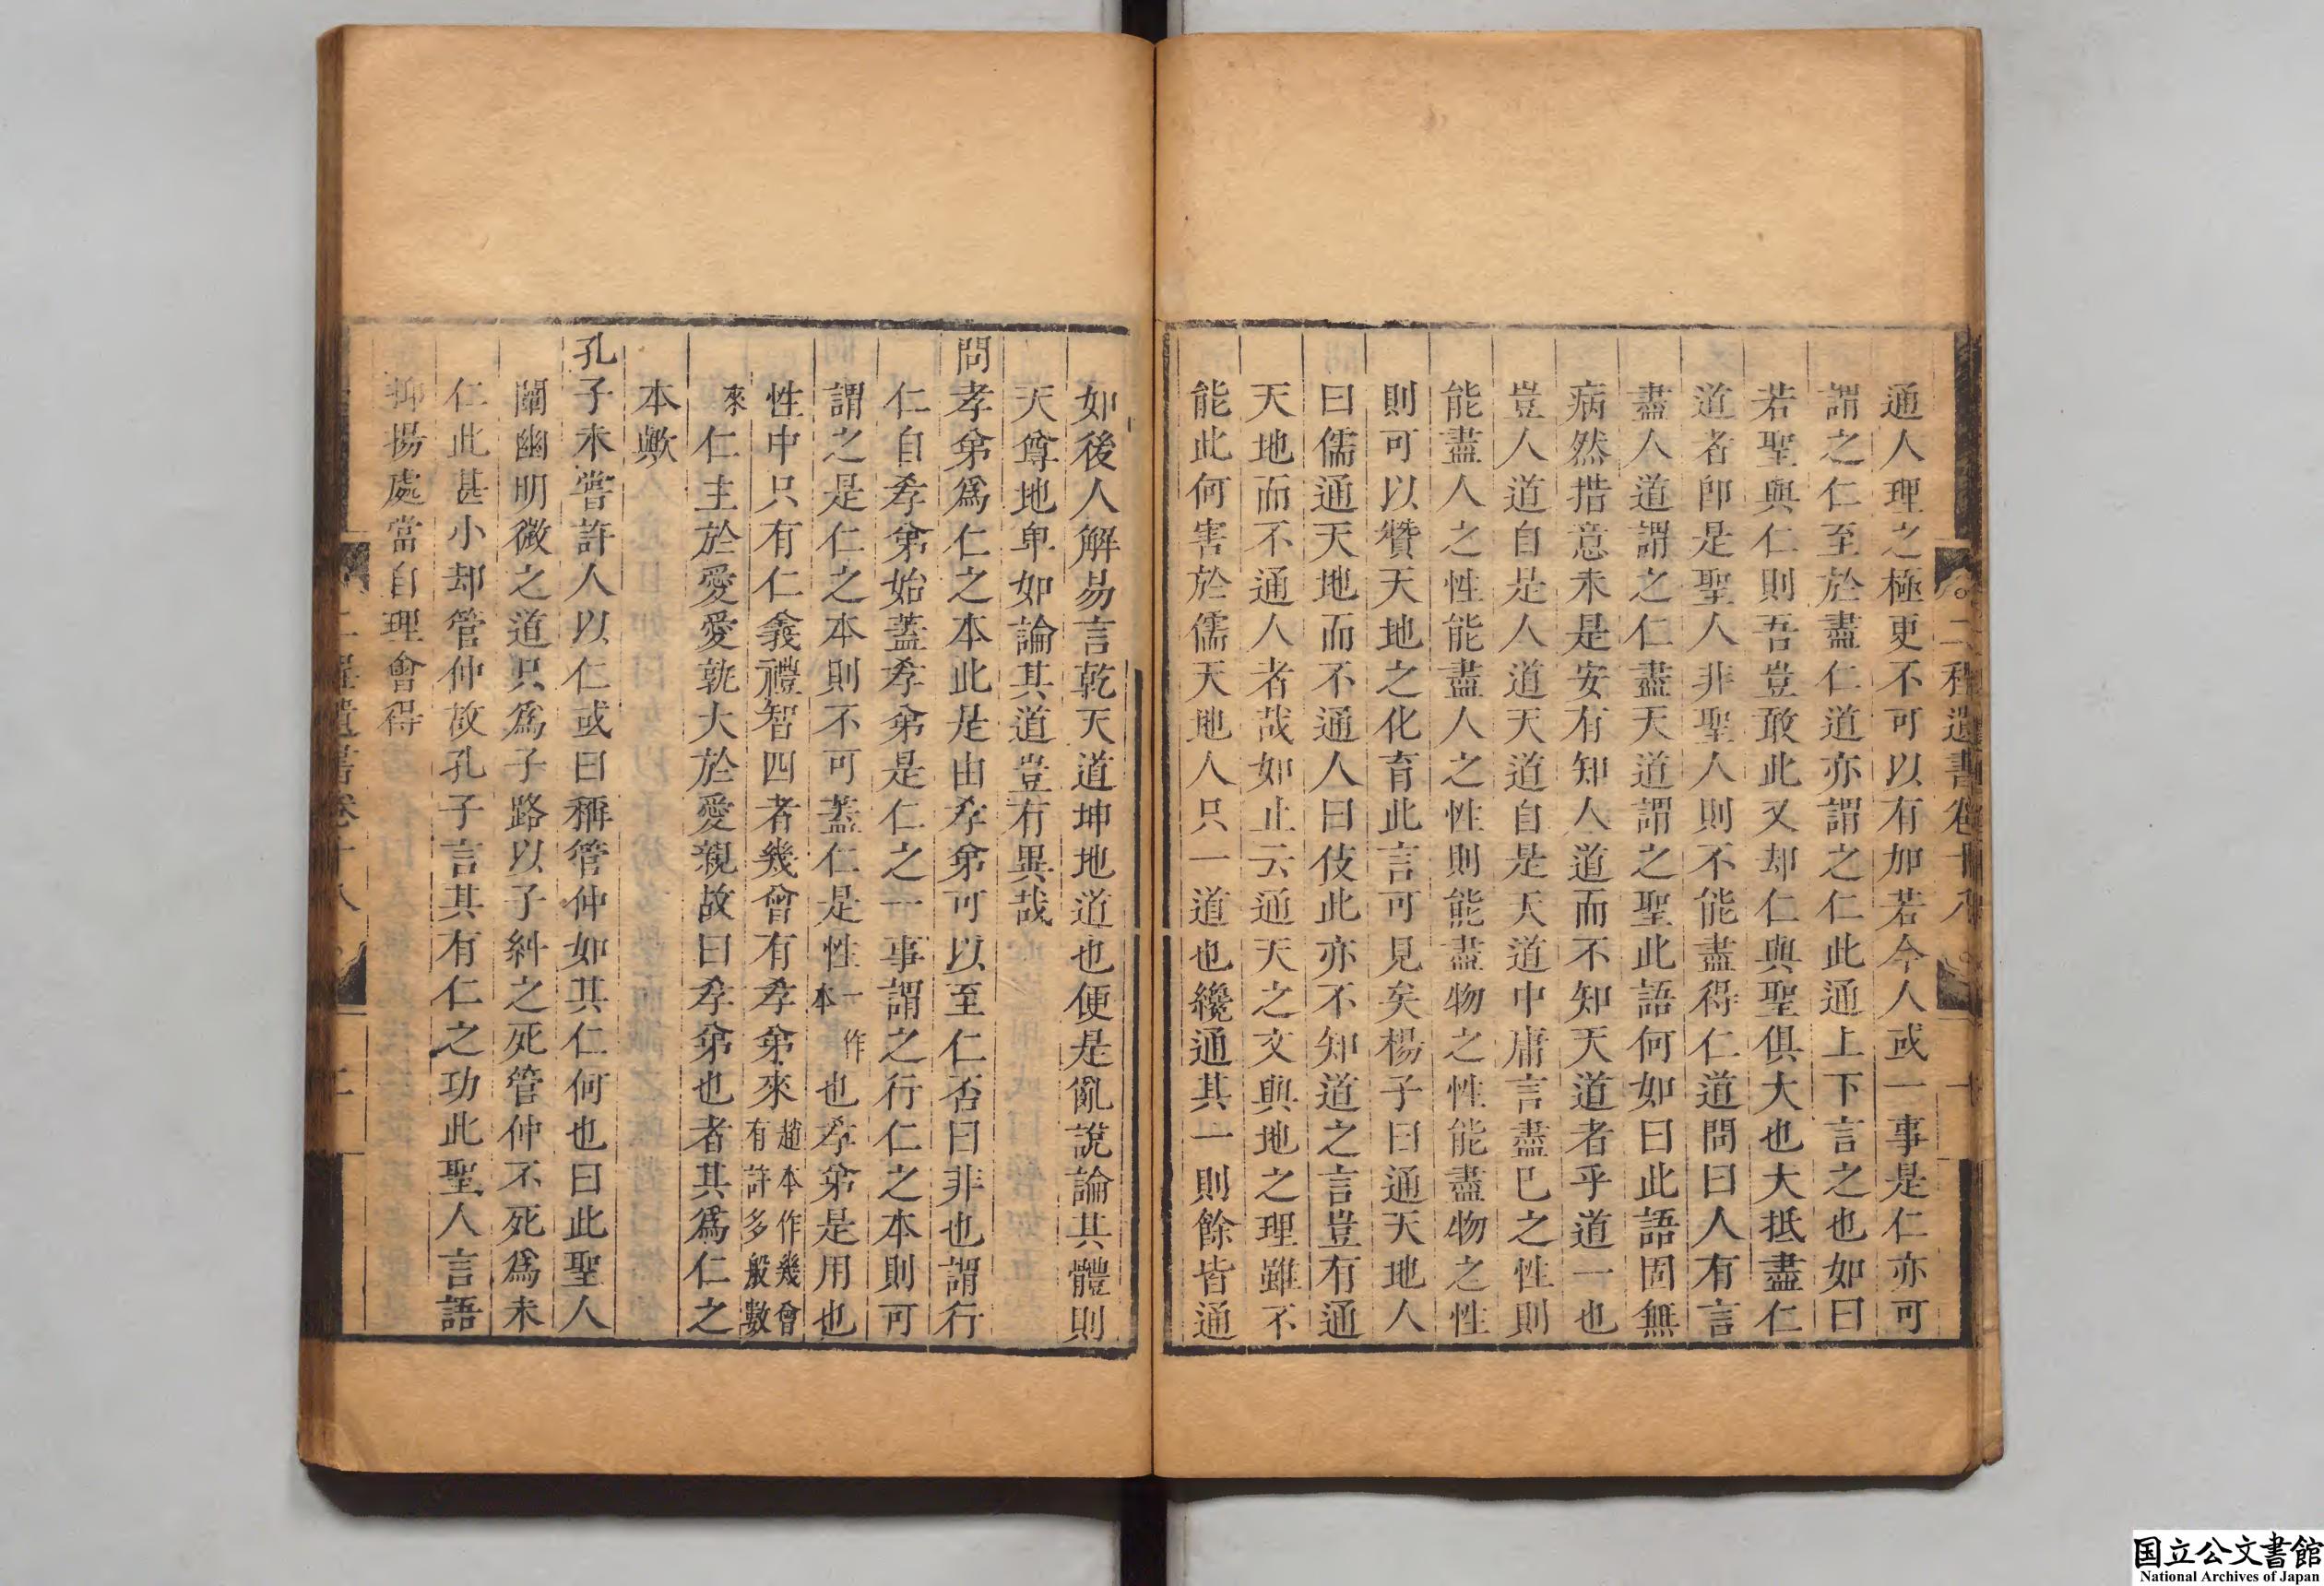 二程遺書卷十八
通人理之極更不可以有加若今人或一事是仁亦可
謂之仁至於盡仁道亦謂之仁此通上下言之也如曰
若聖與仁則吾豈敢此又却仁與聖俱大也大抵盡仁
道者卽是聖人非聖人則不能盡得仁道問曰人有言
盡人道謂之仁盡天道謂之聖此語何如曰此語固無
病然措意未是安有知人道而不知天道者乎道一也
豈人道自是人道天道自是天道中庸言盡已之性則
能盡人之性能盡人之性則能盡物之性能盡物之性
則可以贊天地之化育此言可見矣楊子曰通天地人
曰儒通天地而不通人曰伎此亦不知道之言豈有通
天地而不通人者哉如止云通天之文與地之理雖不
能此何害於儒天地人只一道也纔通其一則餘皆通
如後人解易言乾天道坤地道也便是亂說論其體則
天尊地卑如論其道豈有異哉
問孝弟爲仁之本此是由孝弟可以至仁否曰非也謂行
仁自孝弟始蓋孝弟是仁之一事謂之行仁之本則可
謂之是仁之本則不可蓋仁是性一作本也孝弟是用也
性中只有仁義禮智四者幾曾有孝弟來趙本作幾曾有許多般數
來仁主於愛愛孰大於愛親故曰孝弟也者其爲仁之
本歟
孔子未嘗許人以仁或曰稱管仲如其仁何也曰此聖人
闡幽明微之道只爲子路以子糾之死管仲不死爲未
仁此甚小却管仲故孔子言其有仁之功此聖人言語
抑揚處當自理會得
二程遺書卷十八
国立公文書館
National Archives of Japan